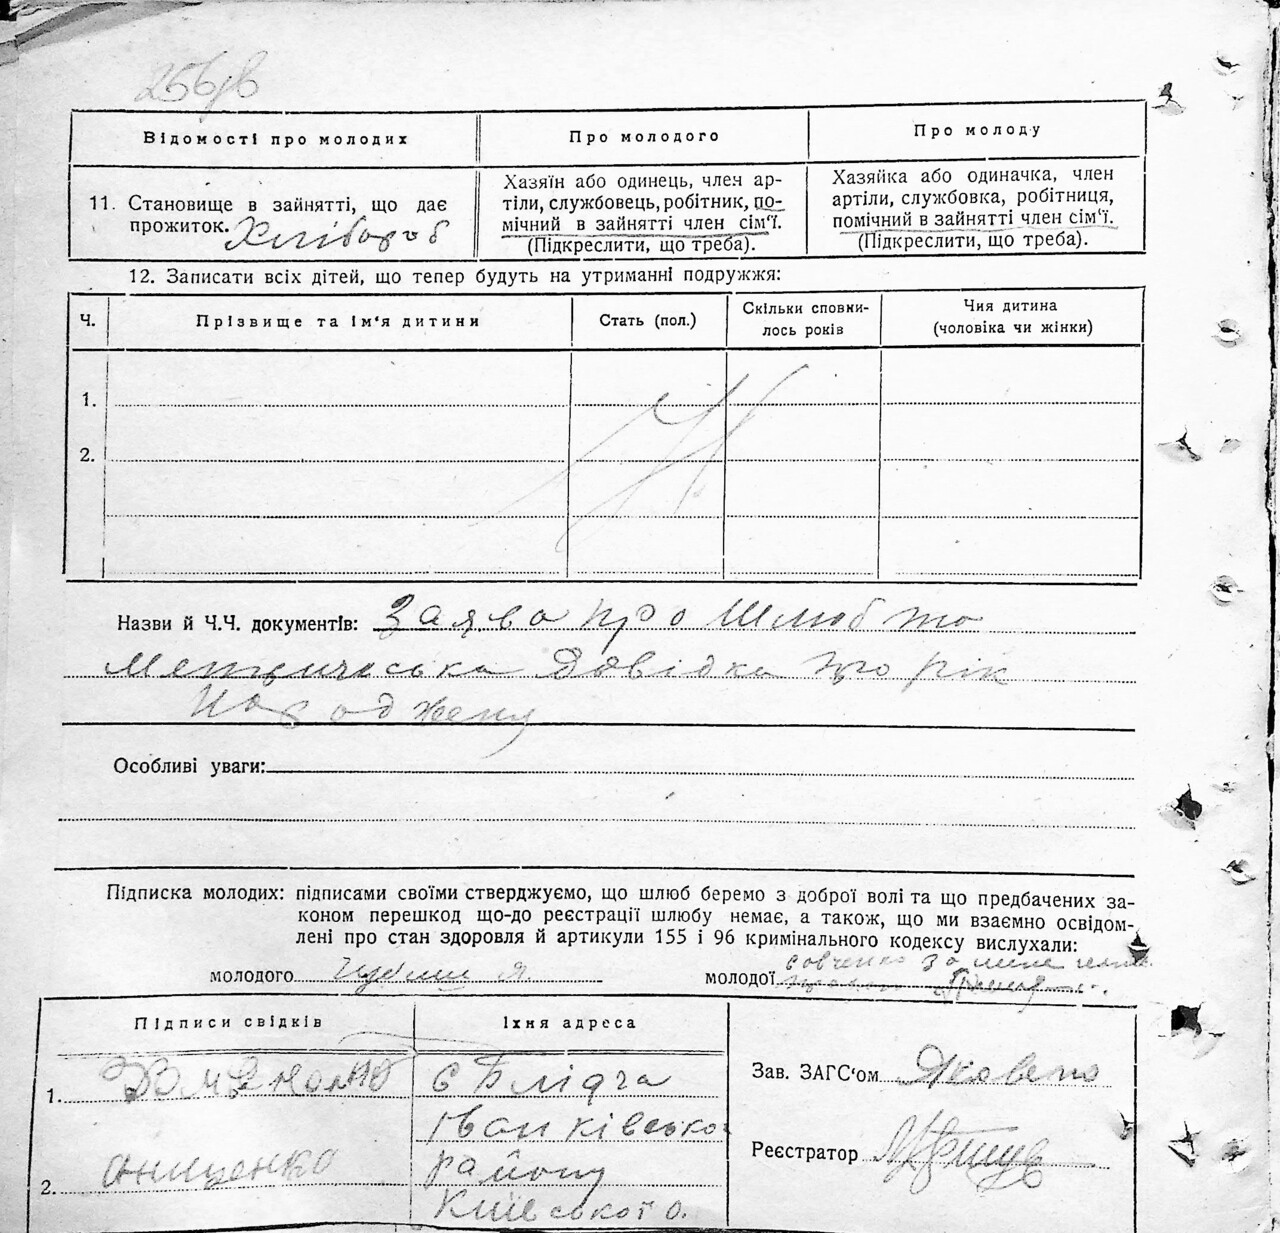 256зв
Відомості про молодих
Про молодого
Про молоду
11. Становище в зайнятті, що дає прожиток. Хлібороб
Хазяїн або одинець, член ар-
тіли, службовець, робітник, по-
мічний в зайнятті член сім'ї.
(Підкреслити, що треба).
Хазяйка або одиначка, член
артіли, службовка, робітниця,
помічний в зайнятті член сім'ї.
(Підкреслити, що треба).
12. Записати всіх дітей, що тепер будуть на утриманні подружжя:
Ч.
Прізвище та ім'я дитини
Стать (пол.)
Скільки сповни-
лось років
Чия дитина
(чоловіка чи жінки)
1.
2.
Назви й Ч.Ч. документів: Заява про шлюб та
Метрическа Довідка про рік
народженя
Особливі уваги:
Підписка молодих: підписами своїми стверджуємо, що шлюб беремо з доброї волі та що предбачених за-
коном перешкод що-до реєстрації шлюбу немає, а також, що ми взаємно освідом-
лені про стан здоровля й артикули 155 і 96 кримінального кодексу вислухали:
молодого
молодої
Підписи свідків
Їхня адреса
1.
с Блідча
Іванківсько
2. Онищенко
району
Київської о.
Зав. ЗАГС'ом
Реєстратор